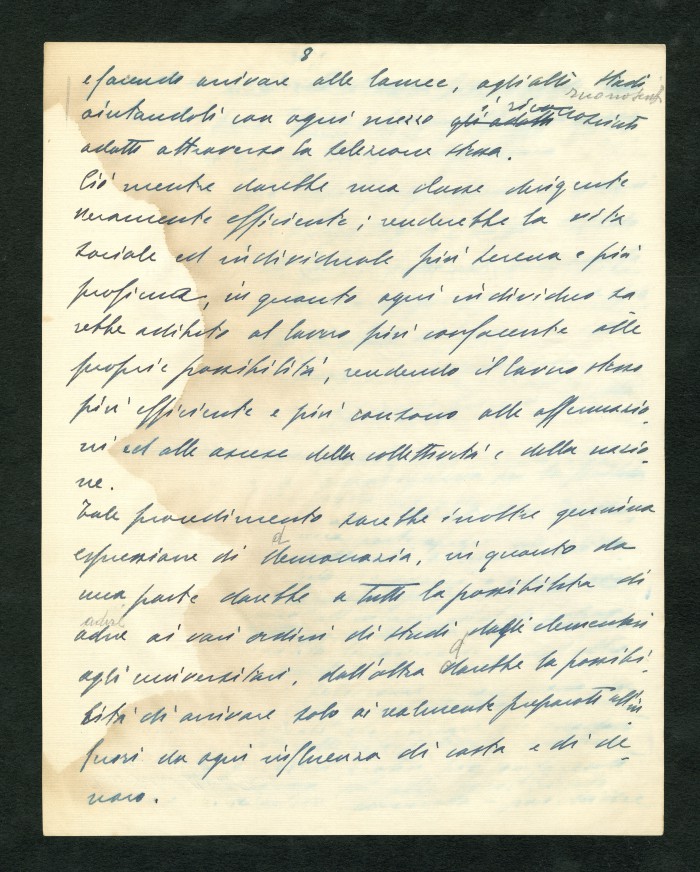 8
e facendo arrivare alle lauree, agli alti studi,
riconosciuti
aiutandoli con ogni mezzo gli adatti i riconosciuti
adatti attraverso la selezione stessa.
Ciò mentre darebbe una classe dirigente
veramente efficiente; renderebbe la vita
sociale ed individuale più serena e più
proficua, in quanto ogni individuo sa
rebbe adibito al lavoro più confacente alle
proprie possibilità, rendendo il lavoro stesso
più efficiente e più consono alle affermazio-
ni ed alle ascese della collettività e della nazio-
ne.
Tale procedimento sarebbe inoltre genuina
d
espressione di democrazia, in quanto da
una parte darebbe a tutti la possibilità di
adire
adire ai vari ordini di studi dagli elementari
d
agli universitari, dall'altra darebbe la possibi-
lità di arrivare solo ai realmente preparati all'in
fuori da ogni influenza di casta e di de-
naro.